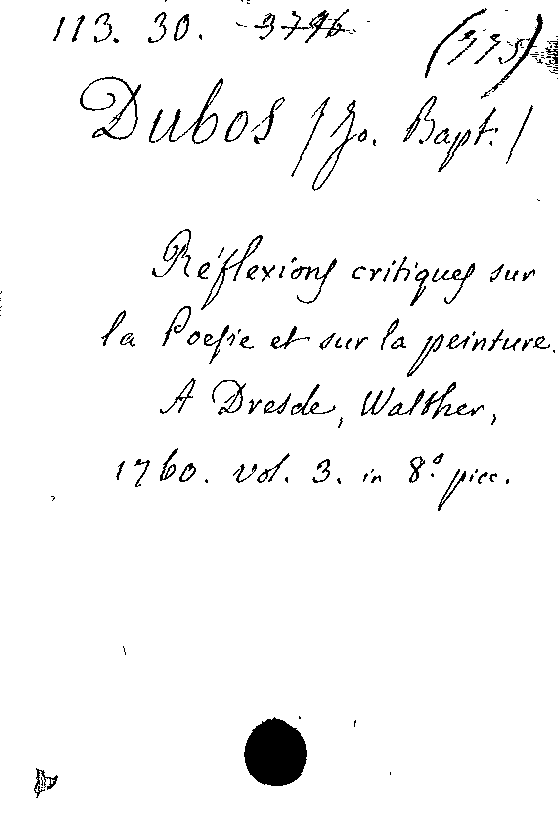 113. 30. 3796 (335)
Dubos /Jo. Bapt:/
Réflexions critiques sur
la Poesie et sur la peinture.
A Dresde, Walther,
1760. vol. 3. in 8.º picc.